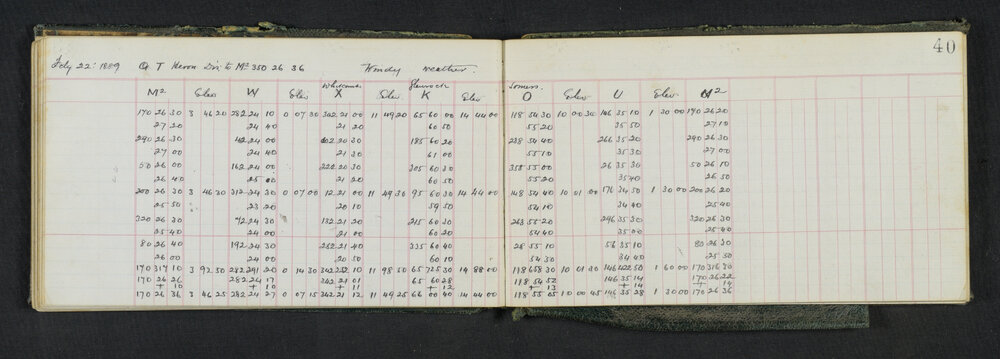 40
Feby 22: 1889 @ T Heron Div. to M2 350 26 36 Windy weather.
Whitcombe Glenrock Somers
M2 Elev W Elev X Elev K Elev O Elev U Elev M2
170 26 30 3 46 20 282 24 10 0 07 30 342 21 00 11 49 20 65 60 00 14 44 00 118 54 30 10 00 30 146 35 10 1 30 00 170 26 20
27 20 24 40 21 20 60 50 55 20 35 50 27 10
290 26 30 42 24 00 102 20 30 185 60 20 238 54 40 266 35 20 290 26 30
27 00 24 40 21 30 61 00 55 10 35 30 27 00
50 26 00 162 24 00 222 20 30 305 60 30 358 55 00 26 35 30 50 26 10
26 40 25 00 21 20 60 50 55 20 35 40 26 50
200 26 30 3 46 30 312 24 30 0 07 00 12 21 00 11 49 30 95 60 30 14 44 00 148 54 40 10 01 00 176 34 50 1 30 00 200 26 20
25 50 23 20 20 10 59 50 54 10 34 40 25 40
320 26 30 72 24 30 132 21 20 215 60 30 268 55 20 296 35 30 320 26 30
25 40 24 00 21 00 60 20 54 40 35 00 25 40
80 26 40 192 24 30 252 21 40 335 60 40 28 55 10 56 35 10 80 26 30
26 00 24 00 20 50 60 10 54 30 34 40 25 50
170 317 10 3 92 50 282 291 20 0 14 30 342 252 10 11 98 50 65 725 30 14 88 00 118 658 30 10 01 30 146 422 50 1 60 00 170 316 30
170 26 26 282 24 17 342 21 01 65 60 28 118 54 52 146 35 14 170 26 22
+ 10 + 10 + 11 + 12 + 13 + 14 + 14
170 26 36 3 46 25 282 24 27 0 07 15 342 21 12 11 49 25 66 00 40 14 44 00 118 55 05 10 00 45 146 35 28 1 30 00 170 26 36